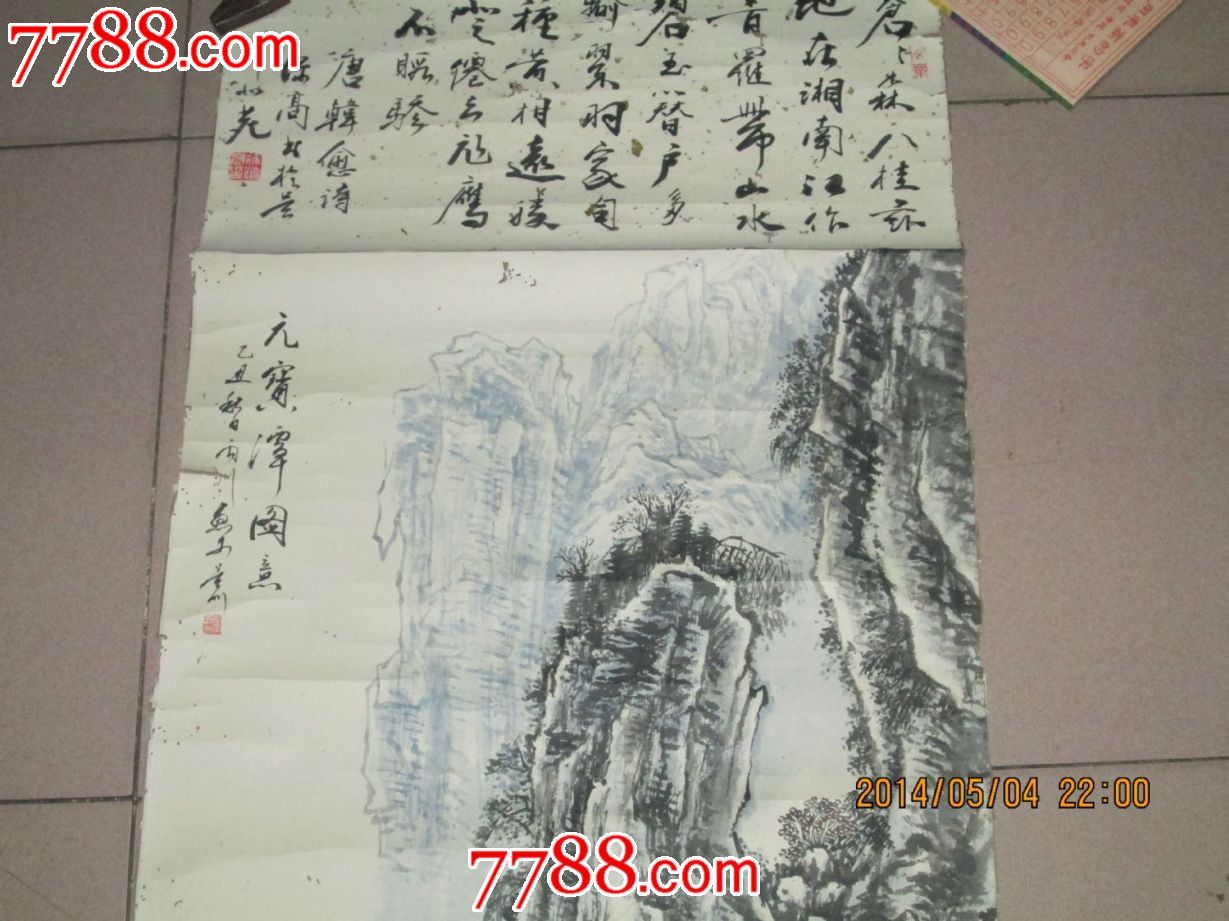 7788.com
7788.com
蒼蒼森八桂茲
地在湘南江作
青羅帶山水
碧玉簪戶多
輸翠羽家自
種黃柑遠勝
登僊去飛鸞
不暇驂
唐韓愈詩
高書於
苑
元寶潭圖意
乙丑秋日
2014/05/04 22:00
7788.com